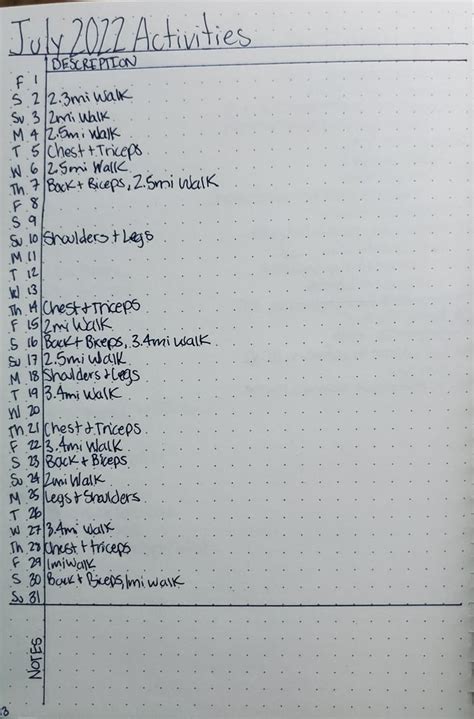 July 2022 Activities
DESCRIPTION
F 1
S 2 2.3mi Walk
Su 3 2mi Walk
M 4 2.5mi Walk
T 5 Chest + Triceps
W 6 2.5mi Walk
Th 7 Back + Biceps, 2.5mi Walk
F 8
S 9
Su 10 Shoulders + Legs
M 11
T 12
W 13
Th 14 Chest + Triceps
F 15 2mi Walk
S 16 Back + Biceps, 3.4mi Walk
Su 17 2.5mi Walk
M 18 Shoulders + Legs
T 19 3.4mi Walk
W 20
Th 21 Chest + Triceps
F 22 3.4mi Walk
S 23 Back + Biceps
Su 24 2mi Walk
M 25 Legs + Shoulders
T 26
W 27 3.4mi Walk
Th 28 Chest + triceps
F 29 1mi Walk
S 30 Back + Biceps, 1mi walk
Su 31
NOTES